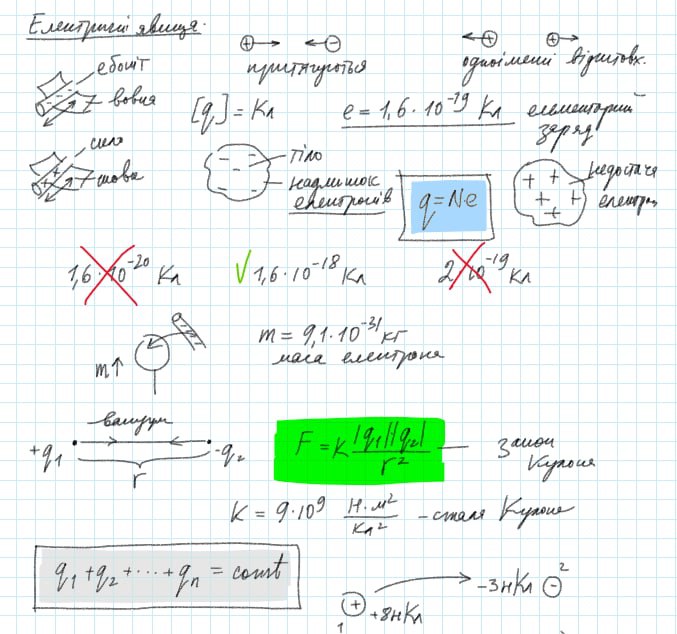 Електричні явища.
⊕→ ←⊖
←⊕ ⊕→
притягуються
одноіменні відштовх.
ебоніт
вовна
[q] = Кл
e = 1,6 · 10⁻¹⁹ Кл
елементарний
заряд
скло
шовк
тіло
надлишок
електронів
q = Ne
недостача
електрон
1,6 · 10⁻²⁰ Кл
√ 1,6 · 10⁻¹⁸ Кл
2 · 10⁻¹⁹ Кл
m = 9,1 · 10⁻³¹ кг
маса електрона
m↑
вакуум
+q₁
-q₂
r
F = k |q₁||q₂| / r²
Закон
Кулона
K = 9 · 10⁹ Н·м² / Кл² - стала Кулона
q₁ + q₂ + ··· + qₙ = const
-3нКл ⊖ 2
⊕ +8нКл
1